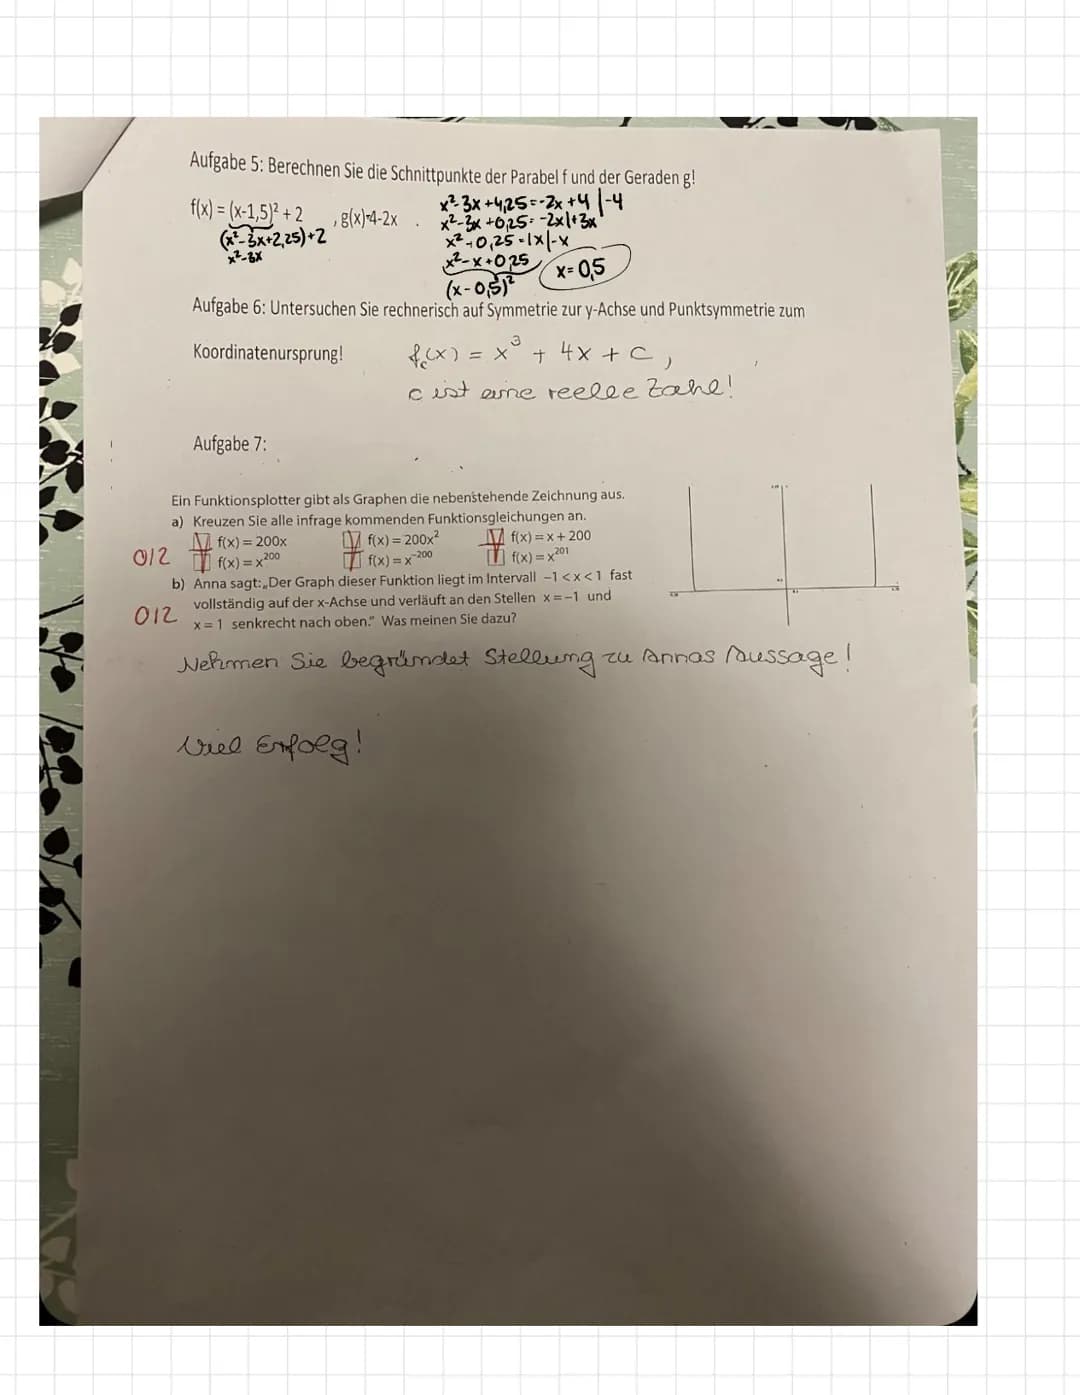 Aufgabe 5: Berechnen Sie die Schnittpunkte der Parabel f und der Geraden g!
f(x) = (x-1,5)² + 2 , g(x)=4-2x .
(x²-3x+2,25)+2
x²-3x
x²-3x+4,25=-2x+4 |-4
x²-3x+0,25=-2x|+3x
x²+0,25=1x|-x
x²-x+0,25
(x-0,5)²
x=0,5
Aufgabe 6: Untersuchen Sie rechnerisch auf Symmetrie zur y-Achse und Punktsymmetrie zum
Koordinatenursprung! f_c(x) = x³ + 4x + c,
c ist eine reelle Zahl!
Aufgabe 7:
Ein Funktionsplotter gibt als Graphen die nebenstehende Zeichnung aus.
a) Kreuzen Sie alle infrage kommenden Funktionsgleichungen an.
f(x) = 200x f(x) = 200x² f(x) = x + 200
0/2 f(x) = x²⁰⁰ f(x) = x⁻²⁰⁰ f(x) = x²⁰¹
b) Anna sagt: „Der Graph dieser Funktion liegt im Intervall -1 < x < 1 fast
0/2 vollständig auf der x-Achse und verläuft an den Stellen x = -1 und
x = 1 senkrecht nach oben." Was meinen Sie dazu?
Nehmen Sie begründet Stellung zu Annas Aussage!
Viel Erfolg!